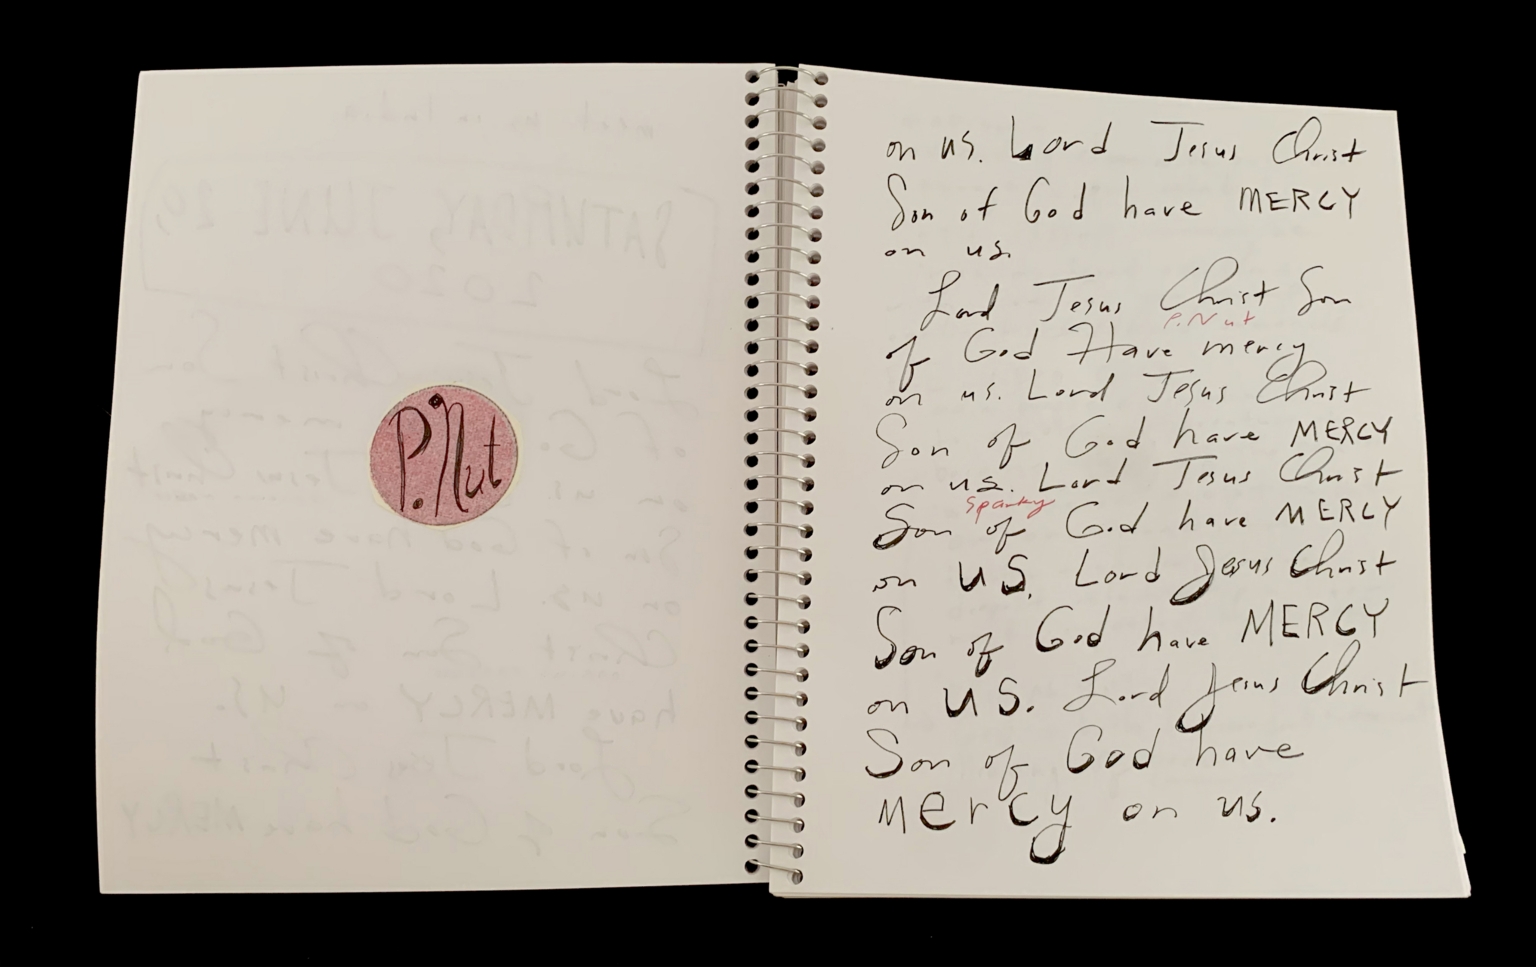 P. Nut
on us. Lord Jesus Christ
Son of God have MERCY
on us.
Lord Jesus Christ Son
P. Nut
of God Have mercy
on us. Lord Jesus Christ
Son of God have MERCY
on us. Lord Jesus Christ
Spanky
Son of God have MERCY
on US. Lord Jesus Christ
Son of God have MERCY
on US. Lord Jesus Christ
Son of God have
mercy on us.